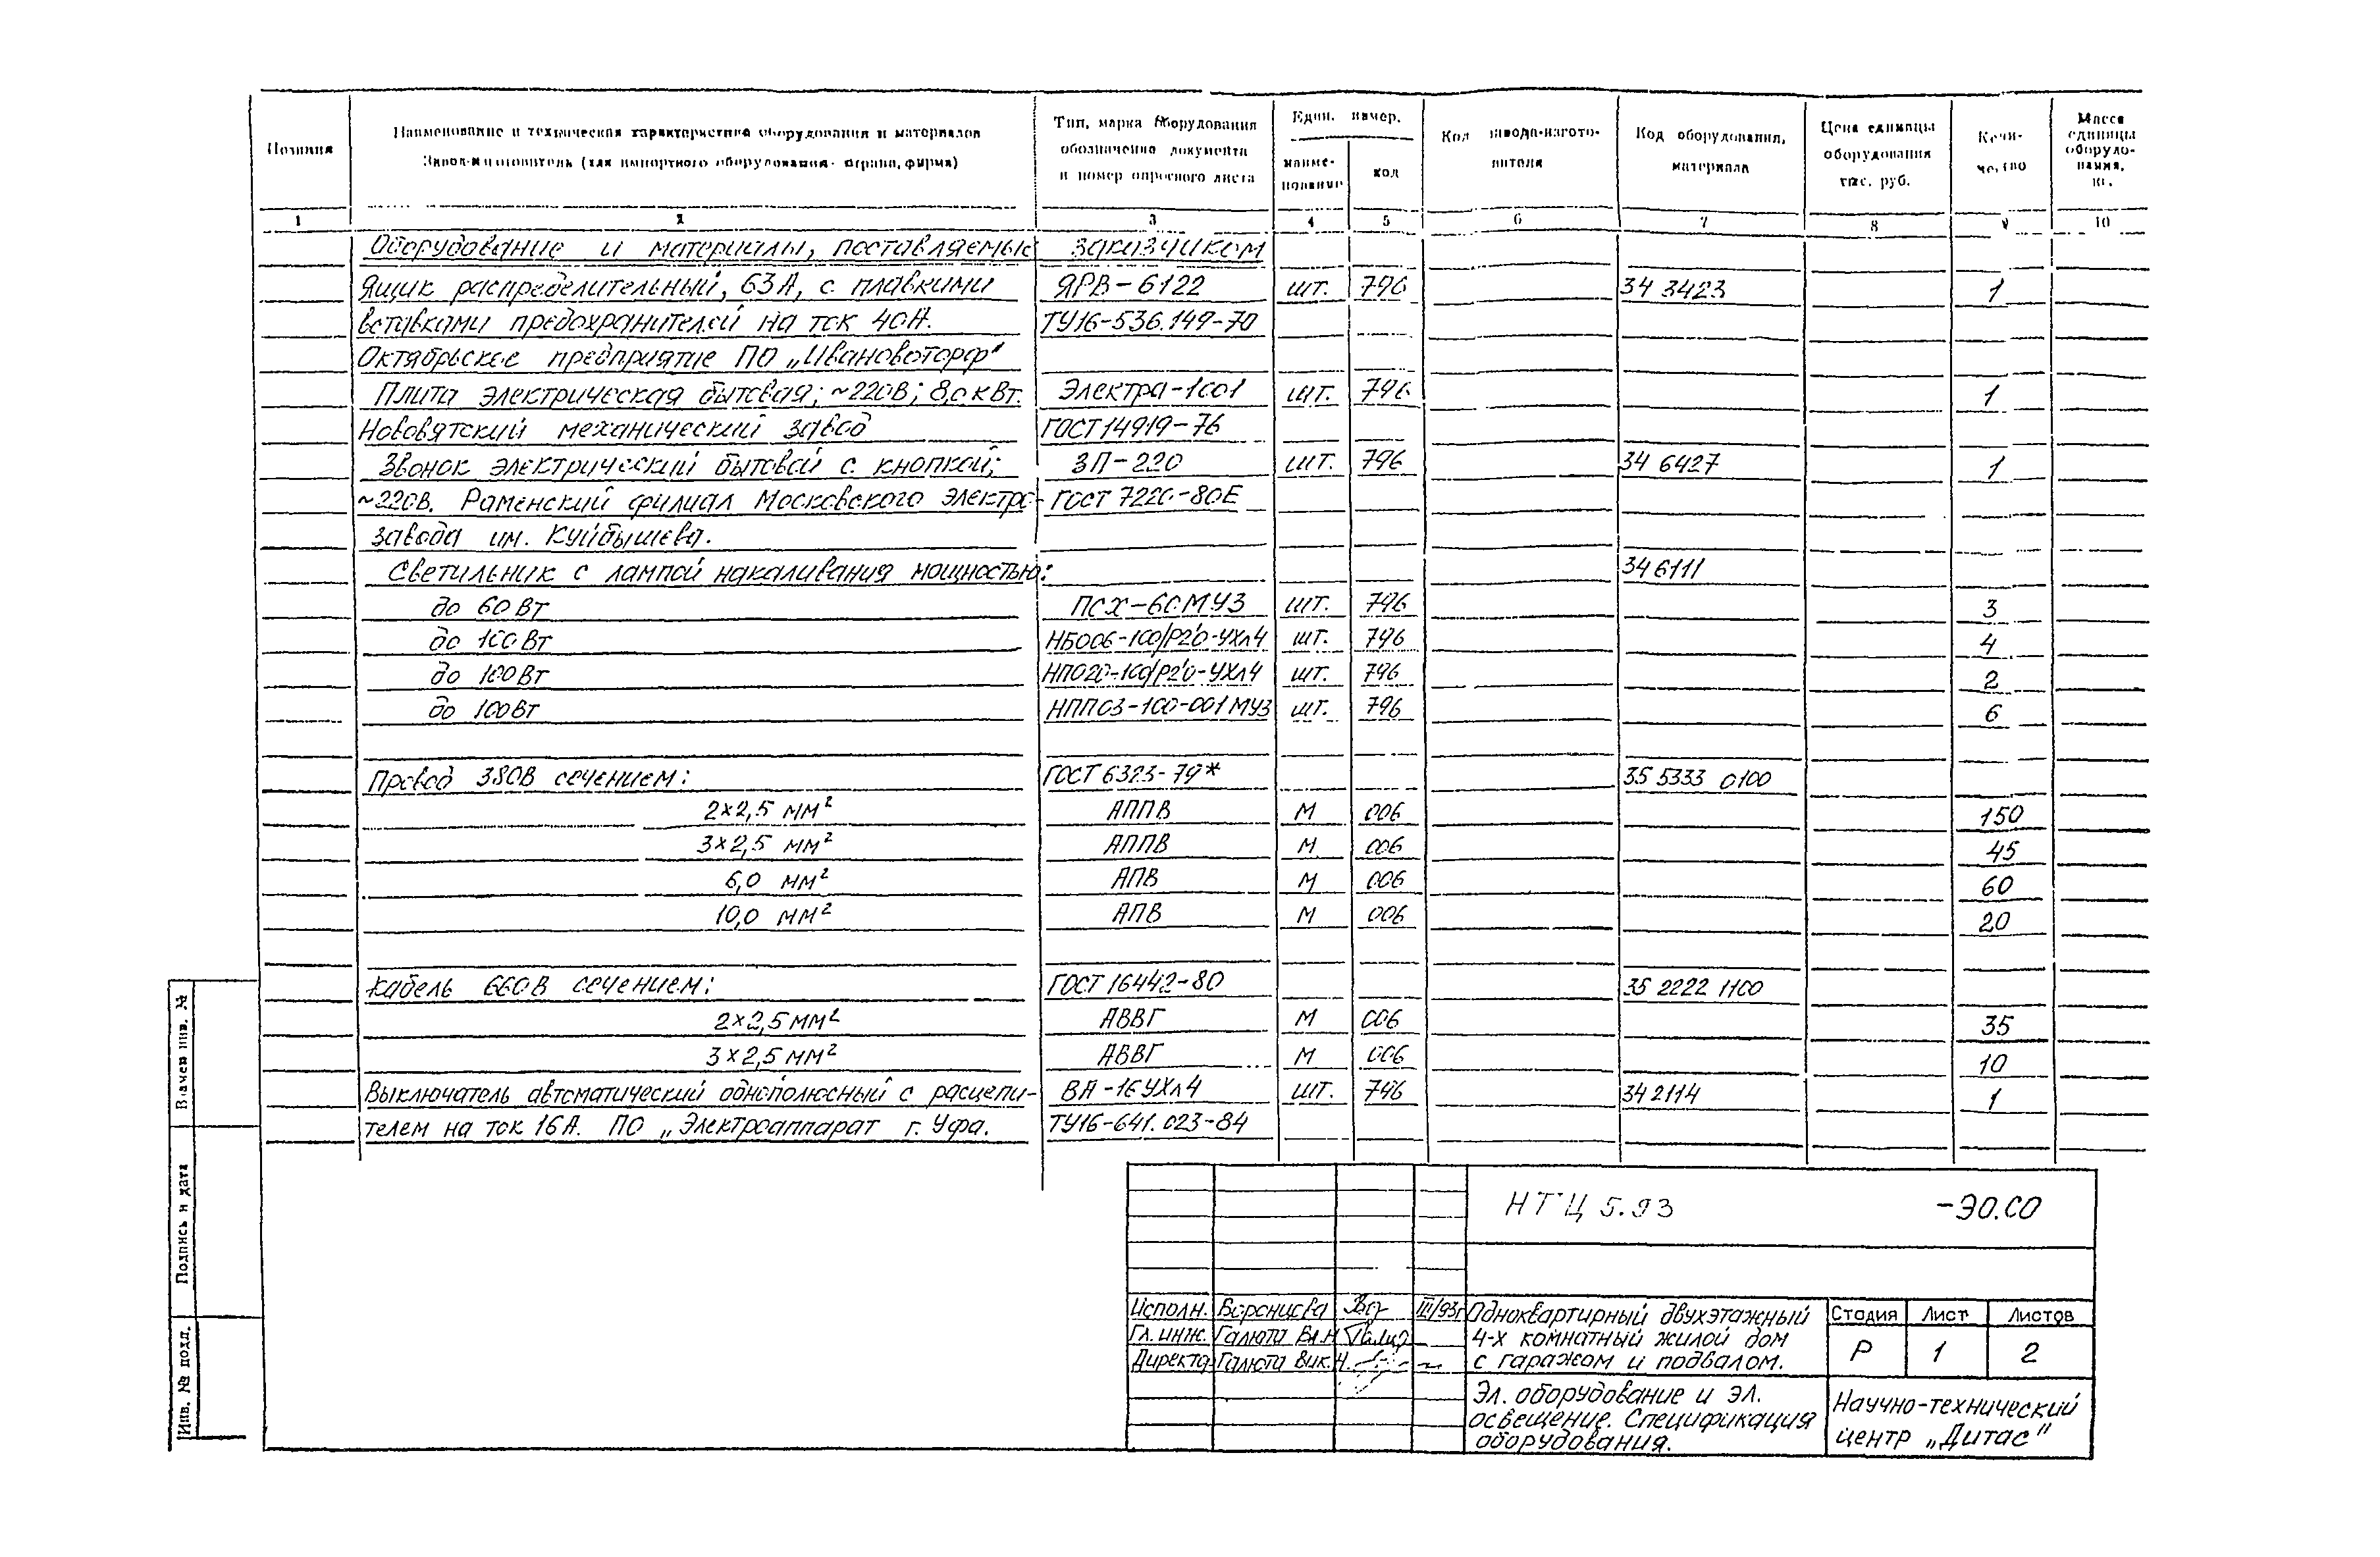 Позиция | Наименование и техническая характеристика оборудования и материалов Завод-изготовитель (для импортного оборудования - страна, фирма) | Тип, марка оборудования обозначение документа и номер опросного листа | Един. измер. наиме-нование | код | Код завода-изгото-вителя | Код оборудования, материала | Цена единицы оборудования тыс. руб. | Коли-чество | Масса единицы оборудо-вания, кг.
1 2 3 4 5 6 7 8 9 10
Оборудование и материалы, поставляемые заказчиком
Ящик распределительный, 63А, с плавкими ЯРВ-6122 шт. 796 34 3423 1
вставками предохранителей на ток 40А. ТУ16-536.149-70
Октябрьское предприятие ПО „Ивановоторф"
Плита электрическая бытовая; ~220В; 8,0 кВт. Электра-1001 шт. 796 1
Нововятский механический завод ГОСТ 14919-76
Звонок электрический бытовой с кнопкой; ЗП-220 шт. 796 34 6427 1
~220В. Раменский филиал Московского электро- ГОСТ 7220-80Е
завода им. Куйбышева.
Светильник с лампой накаливания мощностью: 34 6111
до 60 Вт ПСХ-60МУ3 шт. 796 3
до 100 Вт НБ006-100/Р2'0-УХЛ4 шт. 796 4
до 100 Вт НПО20-100/Р2'0-УХЛ4 шт. 796 2
до 100 Вт НПП03-100-001МУ3 шт. 796 6
Провод 380В сечением: ГОСТ 6323-79* 35 5333 0100
2×2,5 мм² АППВ М 006 150
3×2,5 мм² АППВ М 006 45
6,0 мм² АПВ М 006 60
10,0 мм² АПВ М 006 20
Кабель 660В сечением: ГОСТ 16442-80 35 2222 1100
2×2,5 мм² АВВГ М 006 35
3×2,5 мм² АВВГ М 006 10
Выключатель автоматический однополюсный с расцепи- ВА-16УХЛ4 шт. 796 34 2114 1
телем на ток 16А. ПО „Электроаппарат г. Уфа. ТУ16-641.023-84
Взамен инв. №
Подпись и дата
Инв. № подл.
НТЦ 5.93 -ЭО.СО
Исполн. III/93г
Гл. инж. Галюта Вл.Н.
Директор Галюта Вик.Н.
Одноквартирный двухэтажный
4-х комнатный жилой дом
с гаражом и подвалом.
Стадия Лист Листов
Р 1 2
Эл. оборудование и эл.
освещение. Спецификация
оборудования.
Научно-технический
центр „Дитас"